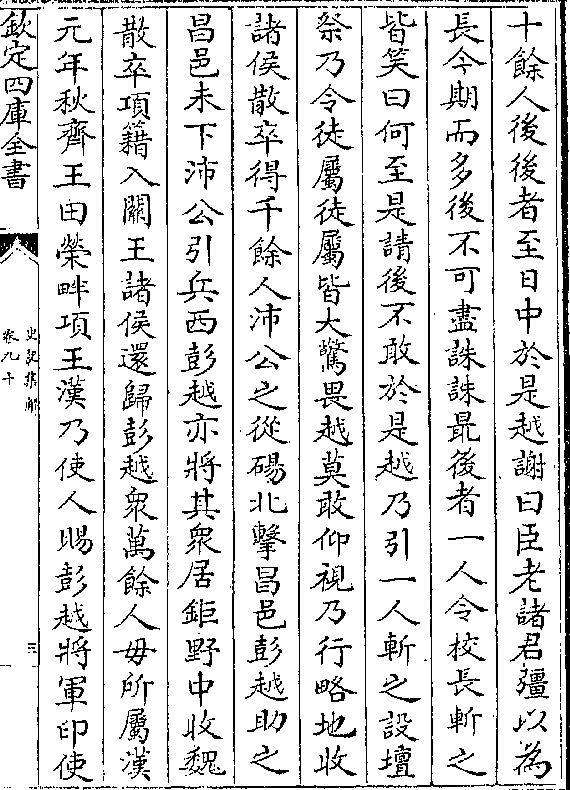 十餘人後後者至日中於是越謝曰臣老諸君彊以為
長今期而多後不可盡誅誅最後者一人令校長斬之
皆笑曰何至是請後不敢於是越乃引一人斬之設壇
祭乃令徒屬徒屬皆大驚畏越莫敢仰視乃行略地收
諸侯散卒得千餘人沛公之從碭北擊昌邑彭越助之
昌邑未下沛公引兵西彭越亦將其衆居鉅野中收魏
散卒項籍入關王諸侯還歸彭越衆萬餘人毋所屬漢
元年秋齊王田榮畔項王漢乃使人賜彭越將軍印使
欽定四庫全書
史記集解
卷九十
三